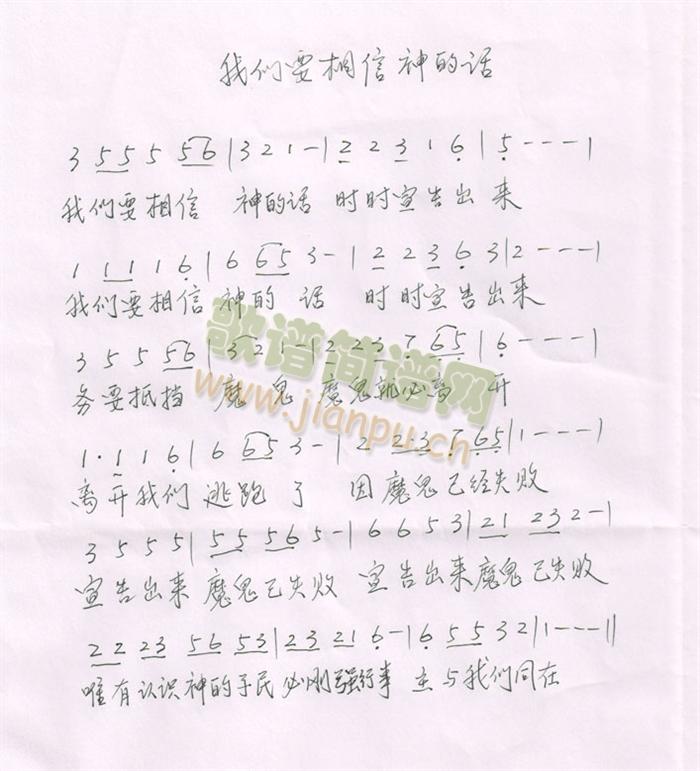 我们要相信神的话
3 5 5 5 56 | 3 2 1 - | 2 2 3 1 6 | 5 - - - |
我们要相信 神的话 时时宣告出来
1 1 1 1 6 | 6 65 3 - | 2 2 3 6 3 | 2 - - - |
我们要相信神的 话 时时宣告出来
3 5 5 5 56 | 3 2 1 - | 2 23 7 65 | 6 - - - |
务要抵挡 魔鬼 魔鬼就必离 开
1 · 1 1 6 | 6 65 3 - | 2 2·3 7 65 | 1 - - - |
离开我们 逃跑了 因魔鬼已经失败
3 5 5 5 | 55 565 - | 6 6 5 3 | 21 232 - |
宣告出来魔鬼已失败 宣告出来魔鬼已失败
22 23 56 53 | 23 21 6 - | 6 55 32 | 1 - - - ||
唯有认识神的子民必刚强行事 主与我们同在
歌谱简谱网
www.jianpu.cn